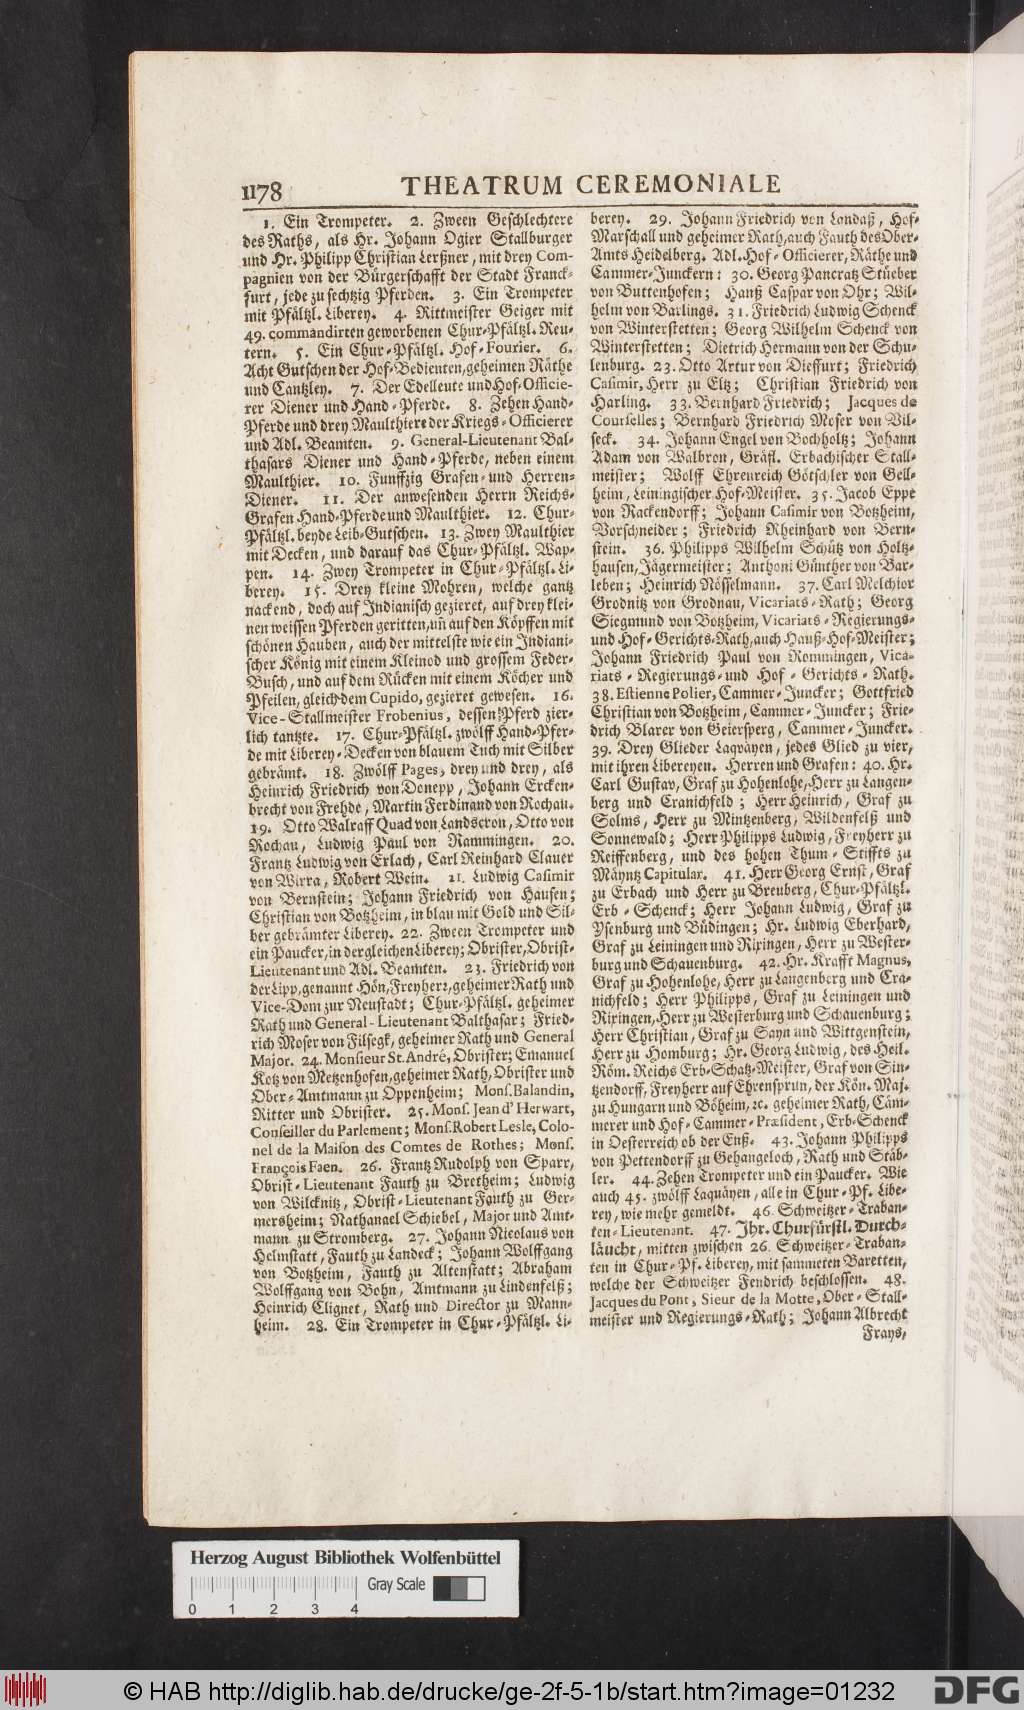 1178 THEATRUM CEREMONIALE
1. Ein Trompeter. 2. Zween Geschlechtere
des Raths, als Hr. Johann Ogier Stallburger
und Hr. Philipp Christian Lerßner, mit drey Com-
pagnien von der Bürgerschafft der Stadt Franck-
furt, jede zu sechtzig Pferden. 3. Ein Trompeter
mit Pfältzl. Liberey. 4. Rittmeister Geiger mit
49. commandirten geworbenen Chur-Pfältzl. Reu-
tern. 5. Ein Chur-Pfältzl. Hof-Fourier. 6.
Acht Gutschen der Hof-Bedienten, geheimen Räthe
und Cantzley. 7. Der Edelleute und Hof-Officie-
rer Diener und Hand-Pferde. 8. Zehen Hand-
Pferde und drey Maulthiere der Kriegs-Officierer
und Adl. Beamten. 9. General-Lieutenant Bal-
thasars Diener und Hand-Pferde, neben einem
Maulthier. 10. Funffzig Grafen- und Herren-
Diener. 11. Der anwesenden Herrn Reichs-
Grafen Hand-Pferde und Maulthier. 12. Chur-
Pfältzl. beyde Leib-Gutschen. 13. Zwey Maulthier
mit Decken, und darauf das Chur-Pfältzl. Wap-
pen. 14. Zwey Trompeter in Chur-Pfältzl. Li-
berey. 15. Drey kleine Mohren, welche gantz
nackend, doch auf Indianisch gezieret, auf drey klei-
nen weissen Pferden geritten, uñ auf den Köpffen mit
schönen Hauben, auch der mittelste wie ein Indiani-
scher König mit einem Kleinod und grossem Feder-
Busch, und auf dem Rücken mit einem Köcher und
Pfeilen, gleich dem Cupido, gezieret gewesen. 16.
Vice-Stallmeister Frobenius, dessen Pferd zier-
lich tantzte. 17. Chur-Pfältzl. zwölff Hand-Pfer-
de mit Liberey-Decken von blauem Tuch mit Silber
gebrämt. 18. Zwölff Pages, drey und drey, als
Heinrich Friedrich von Donepp, Johann Ercken-
brecht von Frehde, Martin Ferdinand von Rochau.
19. Otto Walraff Quad von Landscron, Otto von
Rochau, Ludwig Paul von Rammingen. 20.
Frantz Ludwig von Erlach, Carl Reinhard Clauer
von Wirra, Robert Wein. 21. Ludwig Casimir
von Bernstein; Johann Friedrich von Hausen;
Christian von Botzheim, in blau mit Gold und Sil-
ber gebrämter Liberey. 22. Zween Trompeter und
ein Paucker, in dergleichen Liberey; Obrister, Obrist-
Lieutenant und Adl. Beamten. 23. Friedrich von
der Lipp, genannt Hön, Freyherr, geheimer Rath und
Vice-Dom zur Neustadt; Chur-Pfältzl. geheimer
Rath und General-Lieutenant Balthasar; Fried-
rich Moser von Filsegk, geheimer Rath und General
Major. 24. Monsieur St. André, Obrister; Emanuel
Kotz von Metzenhofen, geheimer Rath, Obrister und
Ober-Amtmann zu Oppenheim; Mons. Balandin,
Ritter und Obrister. 25. Mons. Jean d'Herwart,
Conseiller du Parlement; Mons. Robert Lesle, Colo-
nel de la Maison des Comtes de Rothes; Mons.
François Faen. 26. Frantz Rudolph von Sparr,
Obrist-Lieutenant Fauth zu Bretheim; Ludwig
von Wilcknitz, Obrist-Lieutenant Fauth zu Ger-
mersheim; Nathanael Schiebel, Major und Amt-
mann zu Stromberg. 27. Johann Nicolaus von
Helmstatt, Fauth zu Landeck; Johann Wolffgang
von Botzheim, Fauth zu Altenstatt; Abraham
Wolffgang von Bohn, Amtmann zu Lindenfelß;
Heinrich Clignet, Rath und Director zu Mann-
heim. 28. Ein Trompeter in Chur-Pfältzl. Li-
berey. 29. Johann Friedrich von Landaß, Hof-
Marschall und geheimer Rath, auch Fauth des Ober-
Amts Heidelberg. Adl. Hof-Officierer, Räthe und
Cammer-Junckern: 30. Georg Pancratz Stüeber
von Buttenhofen; Hanß Caspar von Ohr; Wil-
helm von Barlings. 31. Friedrich Ludwig Schenck
von Winterstetten; Georg Wilhelm Schenck von
Winterstetten; Dietrich Hermann von der Schu-
lenburg. 23. Otto Artur von Dieffurt; Friedrich
Casimir, Herr zu Eltz; Christian Friedrich von
Harling. 33. Bernhard Friedrich; Jacques de
Courselles; Bernhard Friedrich Moser von Vil-
seck. 34. Johann Engel von Bochholtz; Johann
Adam von Walbron, Gräfl. Erbachischer Stall-
meister; Wolff Ehrenreich Götschler von Gell-
heim, Leiningischer Hof-Meister. 35. Jacob Eppe
von Rackendorff; Johann Casimir von Botzheim,
Vorschneider; Friedrich Rheinhard von Bern-
stein. 36. Philipps Wilhelm Schütz von Holtz-
hausen, Jägermeister; Anthoni Günther von Bar-
leben; Heinrich Nösselmann. 37. Carl Melchior
Grodnitz von Grodnau, Vicariats-Rath; Georg
Siegmund von Botzheim, Vicariats-Regierungs-
und Hof-Gerichts-Rath, auch Hauß-Hof-Meister;
Johann Friedrich Paul von Rommingen, Vica-
riats-Regierungs- und Hof-Gerichts-Rath.
38. Estienne Polier, Cammer-Juncker; Gottfried
Christian von Botzheim, Cammer-Juncker; Frie-
drich Blarer von Geiersperg, Cammer-Juncker.
39. Drey Glieder Laqväyen, jedes Glied zu vier,
mit ihren Libereyen. Herren und Grafen: 40. Hr.
Carl Gustav, Graf zu Hohenlohe, Herr zu Langen-
berg und Cranichfeld; Herr Heinrich, Graf zu
Solms, Herr zu Mintzenberg, Wildenfelß und
Sonnewald; Herr Philipps Ludwig, Freyherr zu
Reiffenberg, und des hohen Thum-Stiffts zu
Mäyntz Capitular. 41. Herr Georg Ernst, Graf
zu Erbach und Herr zu Breuberg, Chur-Pfältzl.
Erb-Schenck; Herr Johann Ludwig, Graf zu
Ysenburg und Büdingen; Hr. Ludwig Eberhard,
Graf zu Leiningen und Rixingen, Herr zu Wester-
burg und Schauenburg. 42. Hr. Krafft Magnus,
Graf zu Hohenlohe, Herr zu Langenberg und Cra-
nichfeld; Herr Philipps, Graf zu Leiningen und
Rixingen, Herr zu Westerburg und Schauenburg;
Herr Christian, Graf zu Sayn und Wittgenstein,
Herr zu Homburg; Hr. Georg Ludwig, des Heil.
Röm. Reichs Erb-Schatz-Meister, Graf von Sin-
tzendorff, Freyherr auf Ehrensprun, der Kön. Maj.
zu Hungarn und Böheim, ꝛc. geheimer Rath, Cäm-
merer und Hof-Cammer-Præsident, Erb-Schenck
in Oesterreich ob der Enß. 43. Johann Philipps
von Pettendorff zu Gehangeloch, Rath und Stäb-
ler. 44. Zehen Trompeter und ein Paucker. Wie
auch 45. zwölff Laquäyen, alle in Chur-Pf. Libe-
rey, wie mehr gemeldt. 46. Schweitzer-Traban-
ten-Lieutenant. 47. Ihr. Churfürstl. Durch-
läucht, mitten zwischen 26. Schweitzer-Traban-
ten in Chur-Pf. Liberey, mit sammeten Baretten,
welche der Schweitzer Fendrich beschlossen. 48.
Jacques du Pont, Sieur de la Motte, Ober-Stall-
meister und Regierungs-Rath; Johann Albrecht
Frays,
Herzog August Bibliothek Wolfenbüttel
Gray Scale
0 1 2 3 4
© HAB http://diglib.hab.de/drucke/ge-2f-5-1b/start.htm?image=01232
DFG